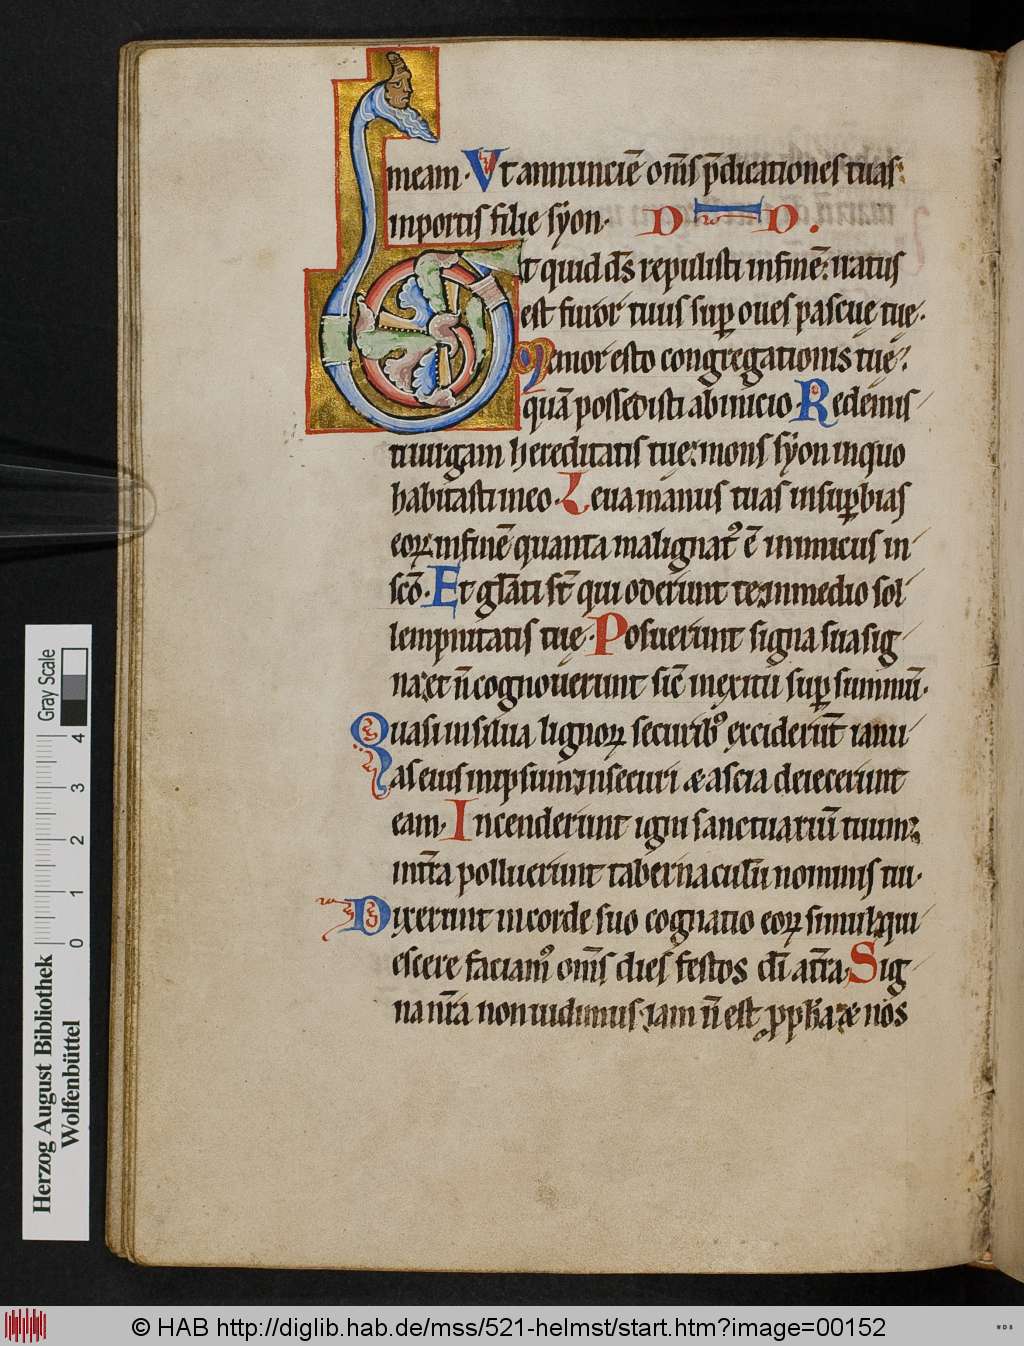 meam. Vt annunciē om̄s p̄dicationes tuas
inportis filie sẏon. D D.
t quid ds̄ repulisti infinē: iratus
est furor tuus sup oues pascuę tuę.
Memor esto congregationis tuę:
quā possedisti abinicio. Redemis
ti uirgam hereditatis tuę: mons sẏon inquo
habitasti ineo. Leua manus tuas insupbias
eoꝝ infinē quanta malignatᵘ ē inimicus in
scō. Et gl̄ati st̄ qui oderunt te: inmedio sol
lempnitatis tuę. Posuerunt signa sua sig
na: et n̄ cognouerunt sic̄ inexitu sup summū.
Quasi insilua lignoꝝ securibꝰ exciderūt ianu
as eius inipsum: insecuri & ascia deiecerunt
eam. Incenderunt igni sanctuariū tuum:
int̄ra polluerunt tabernaculū nominis tui.
Dixerunt incorde suo cognatio eoꝝ simul: qui
escere faciamꝰ om̄s dies festos dī at̄ra. Sig
na nr̄a non uidimus: iam n̄ est ꝓpha: & nos
Herzog August Bibliothek
Wolfenbüttel
0 1 2 3 4
Gray Scale
© HAB http://diglib.hab.de/mss/521-helmst/start.htm?image=00152